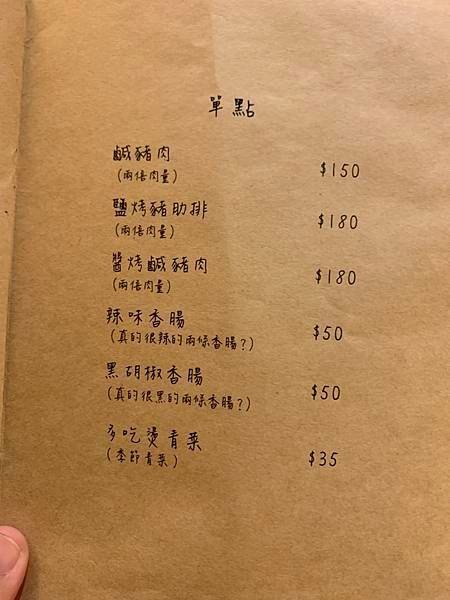 單點
鹹豬肉 $150
(兩倍肉量)
鹽烤豬肋排 $180
(兩倍肉量)
醬烤鹹豬肉 $180
(兩倍肉量)
辣味香腸 $50
(真的很辣的兩條香腸?)
黑胡椒香腸 $50
(真的很黑的兩條香腸?)
多吃燙青菜 $35
(季節青菜)